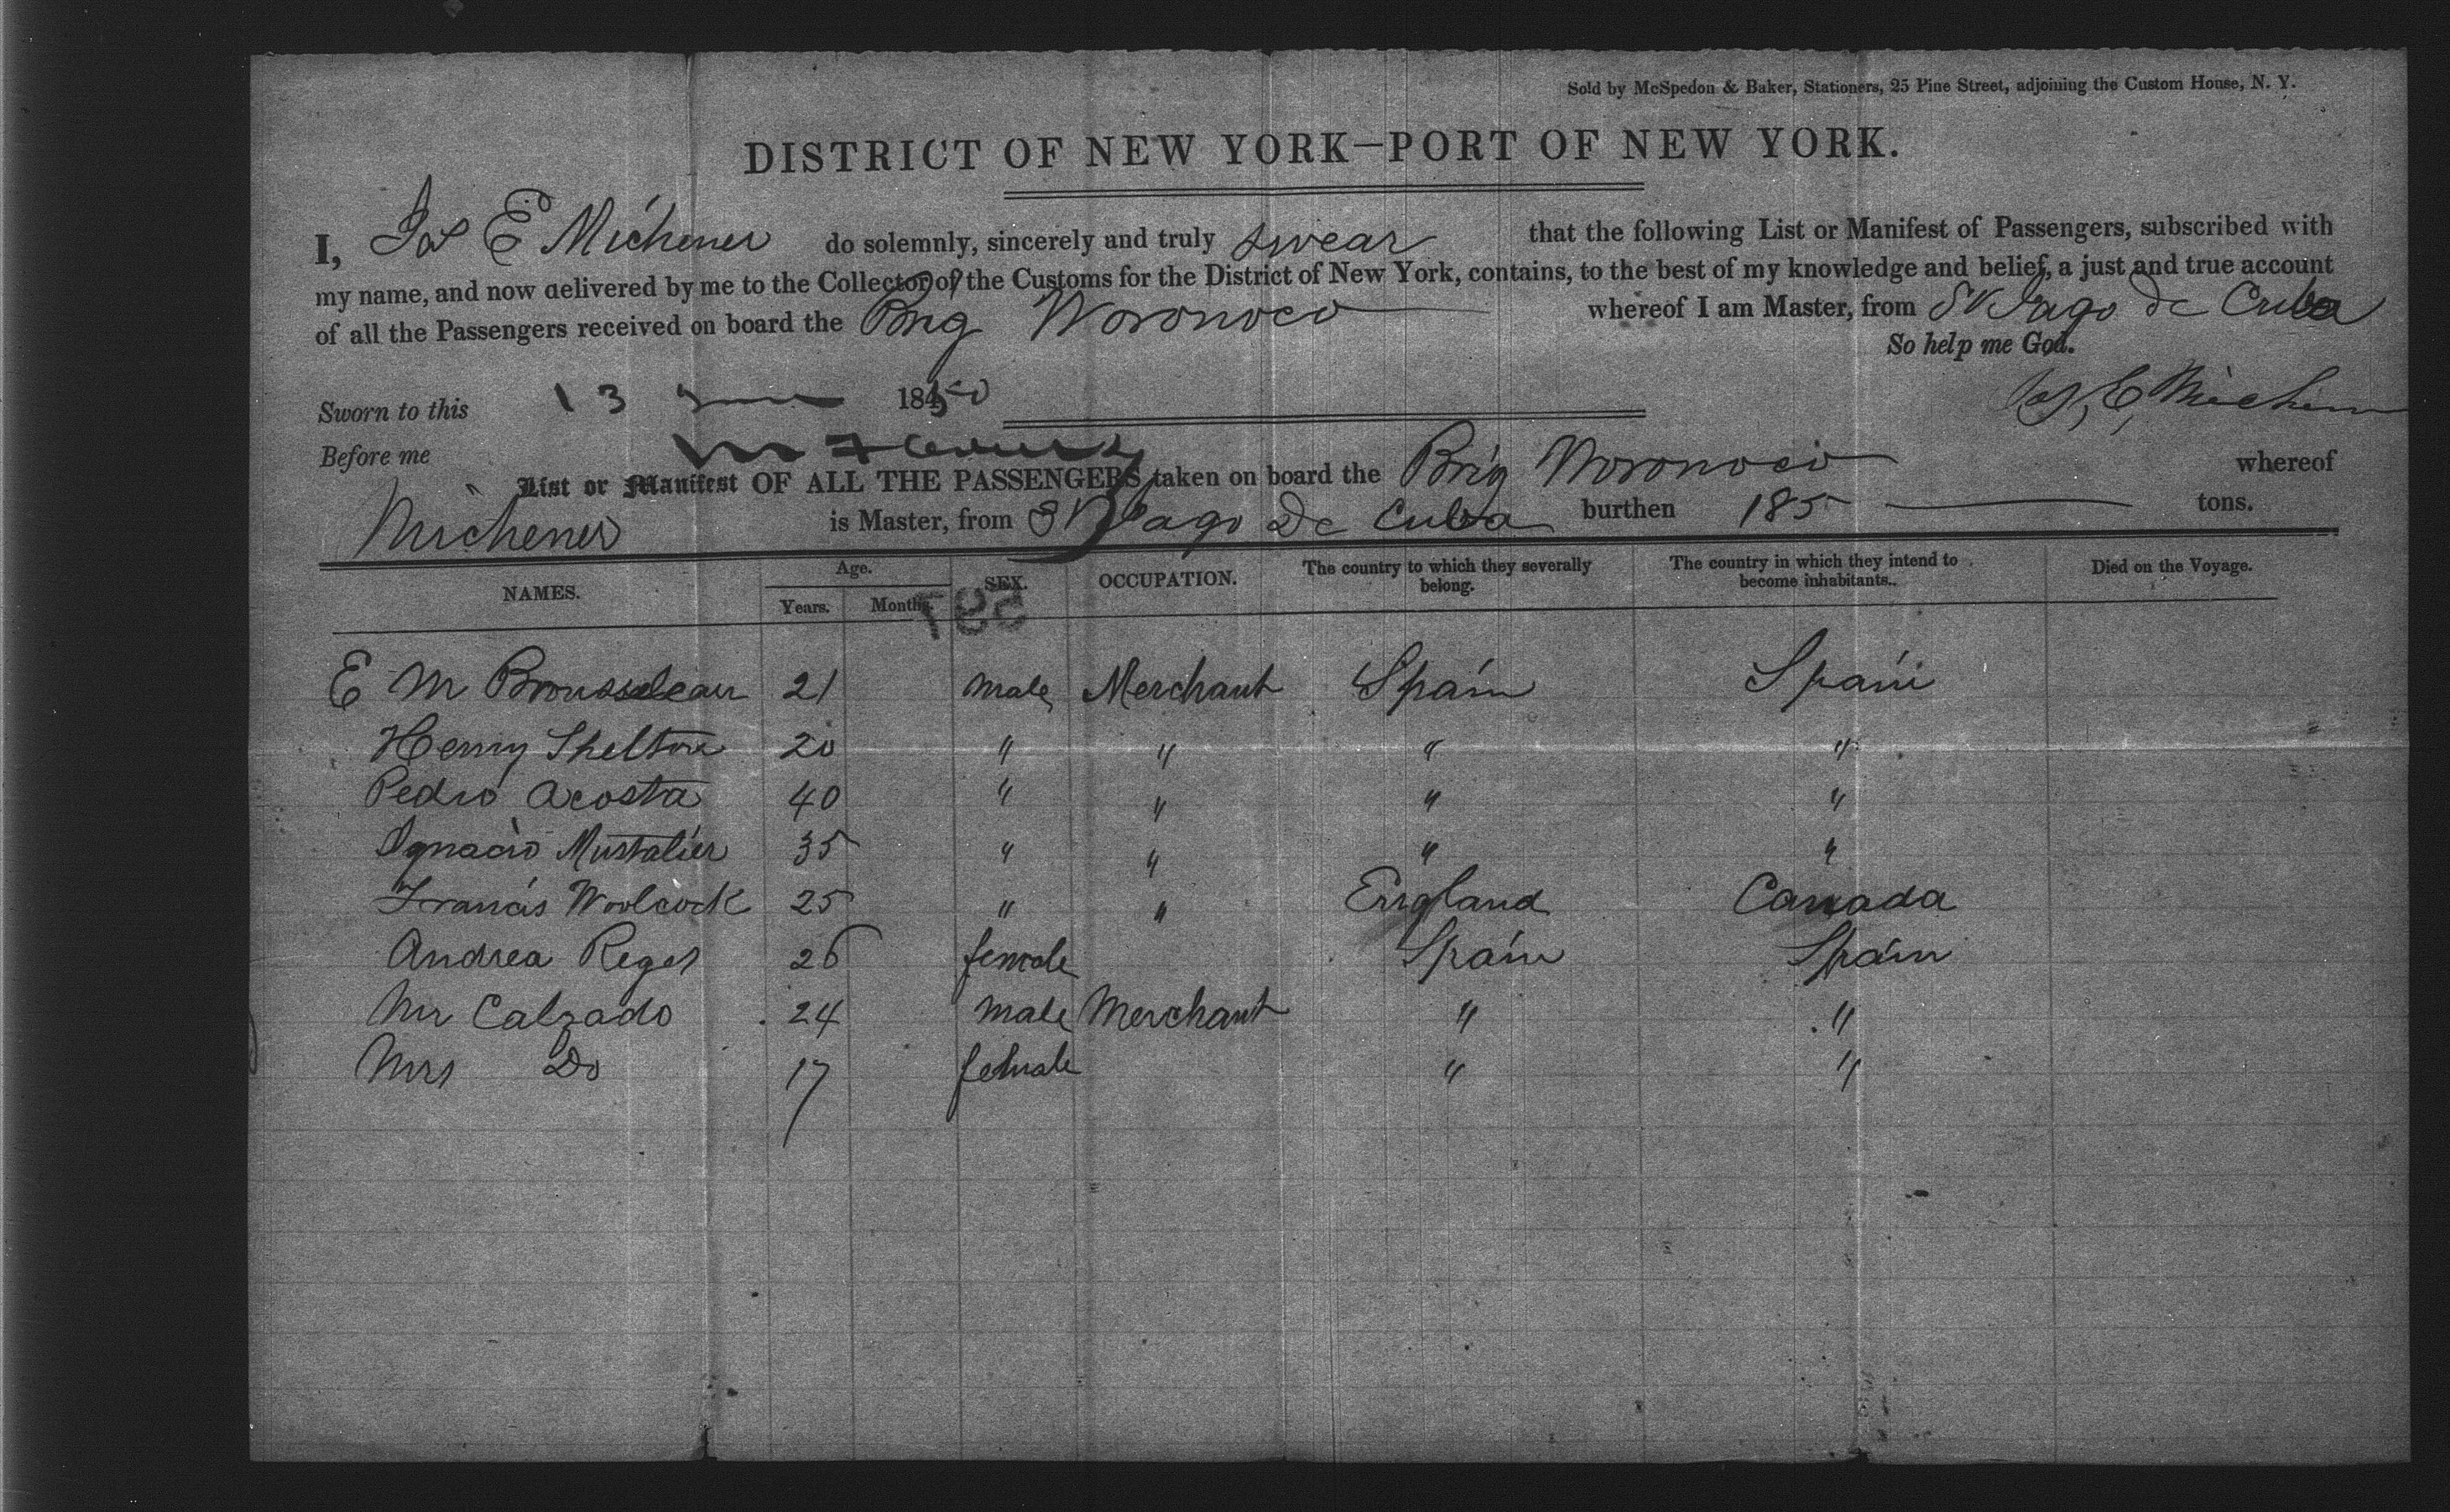 Sold by McSpedon & Baker, Stationers, 25 Pine Street, adjoining the Custom House, N. Y.
DISTRICT OF NEW YORK—PORT OF NEW YORK.
I, Jos E Michener do solemnly, sincerely and truly swear that the following List or Manifest of Passengers, subscribed with
my name, and now delivered by me to the Collector of the Customs for the District of New York, contains, to the best of my knowledge and belief, a just and true account
of all the Passengers received on board the Brig Woronoco whereof I am Master, from St Jago de Cuba
So help me God.
Sworn to this 13 June 1850
Jos, E, Michener
Before me
List or Manifest OF ALL THE PASSENGERS taken on board the Brig Woronoco whereof
Michener is Master, from St Jago De Cuba burthen 185 tons.
NAMES. Age. Years. Months. SEX. OCCUPATION. The country to which they severally belong. The country in which they intend to become inhabitants. Died on the Voyage.
581
E M Brousseleau 21 male Merchant Spain Spain
Henry Shelton 20 " " " "
Pedro Acosta 40 " " " "
Ignacio Mustalier 35 " " " "
Francis Woolcock 25 " " England Canada
Andrea Reges 26 female Spain Spain
Mr Calzado 24 male Merchant " "
Mrs Do 17 female " "